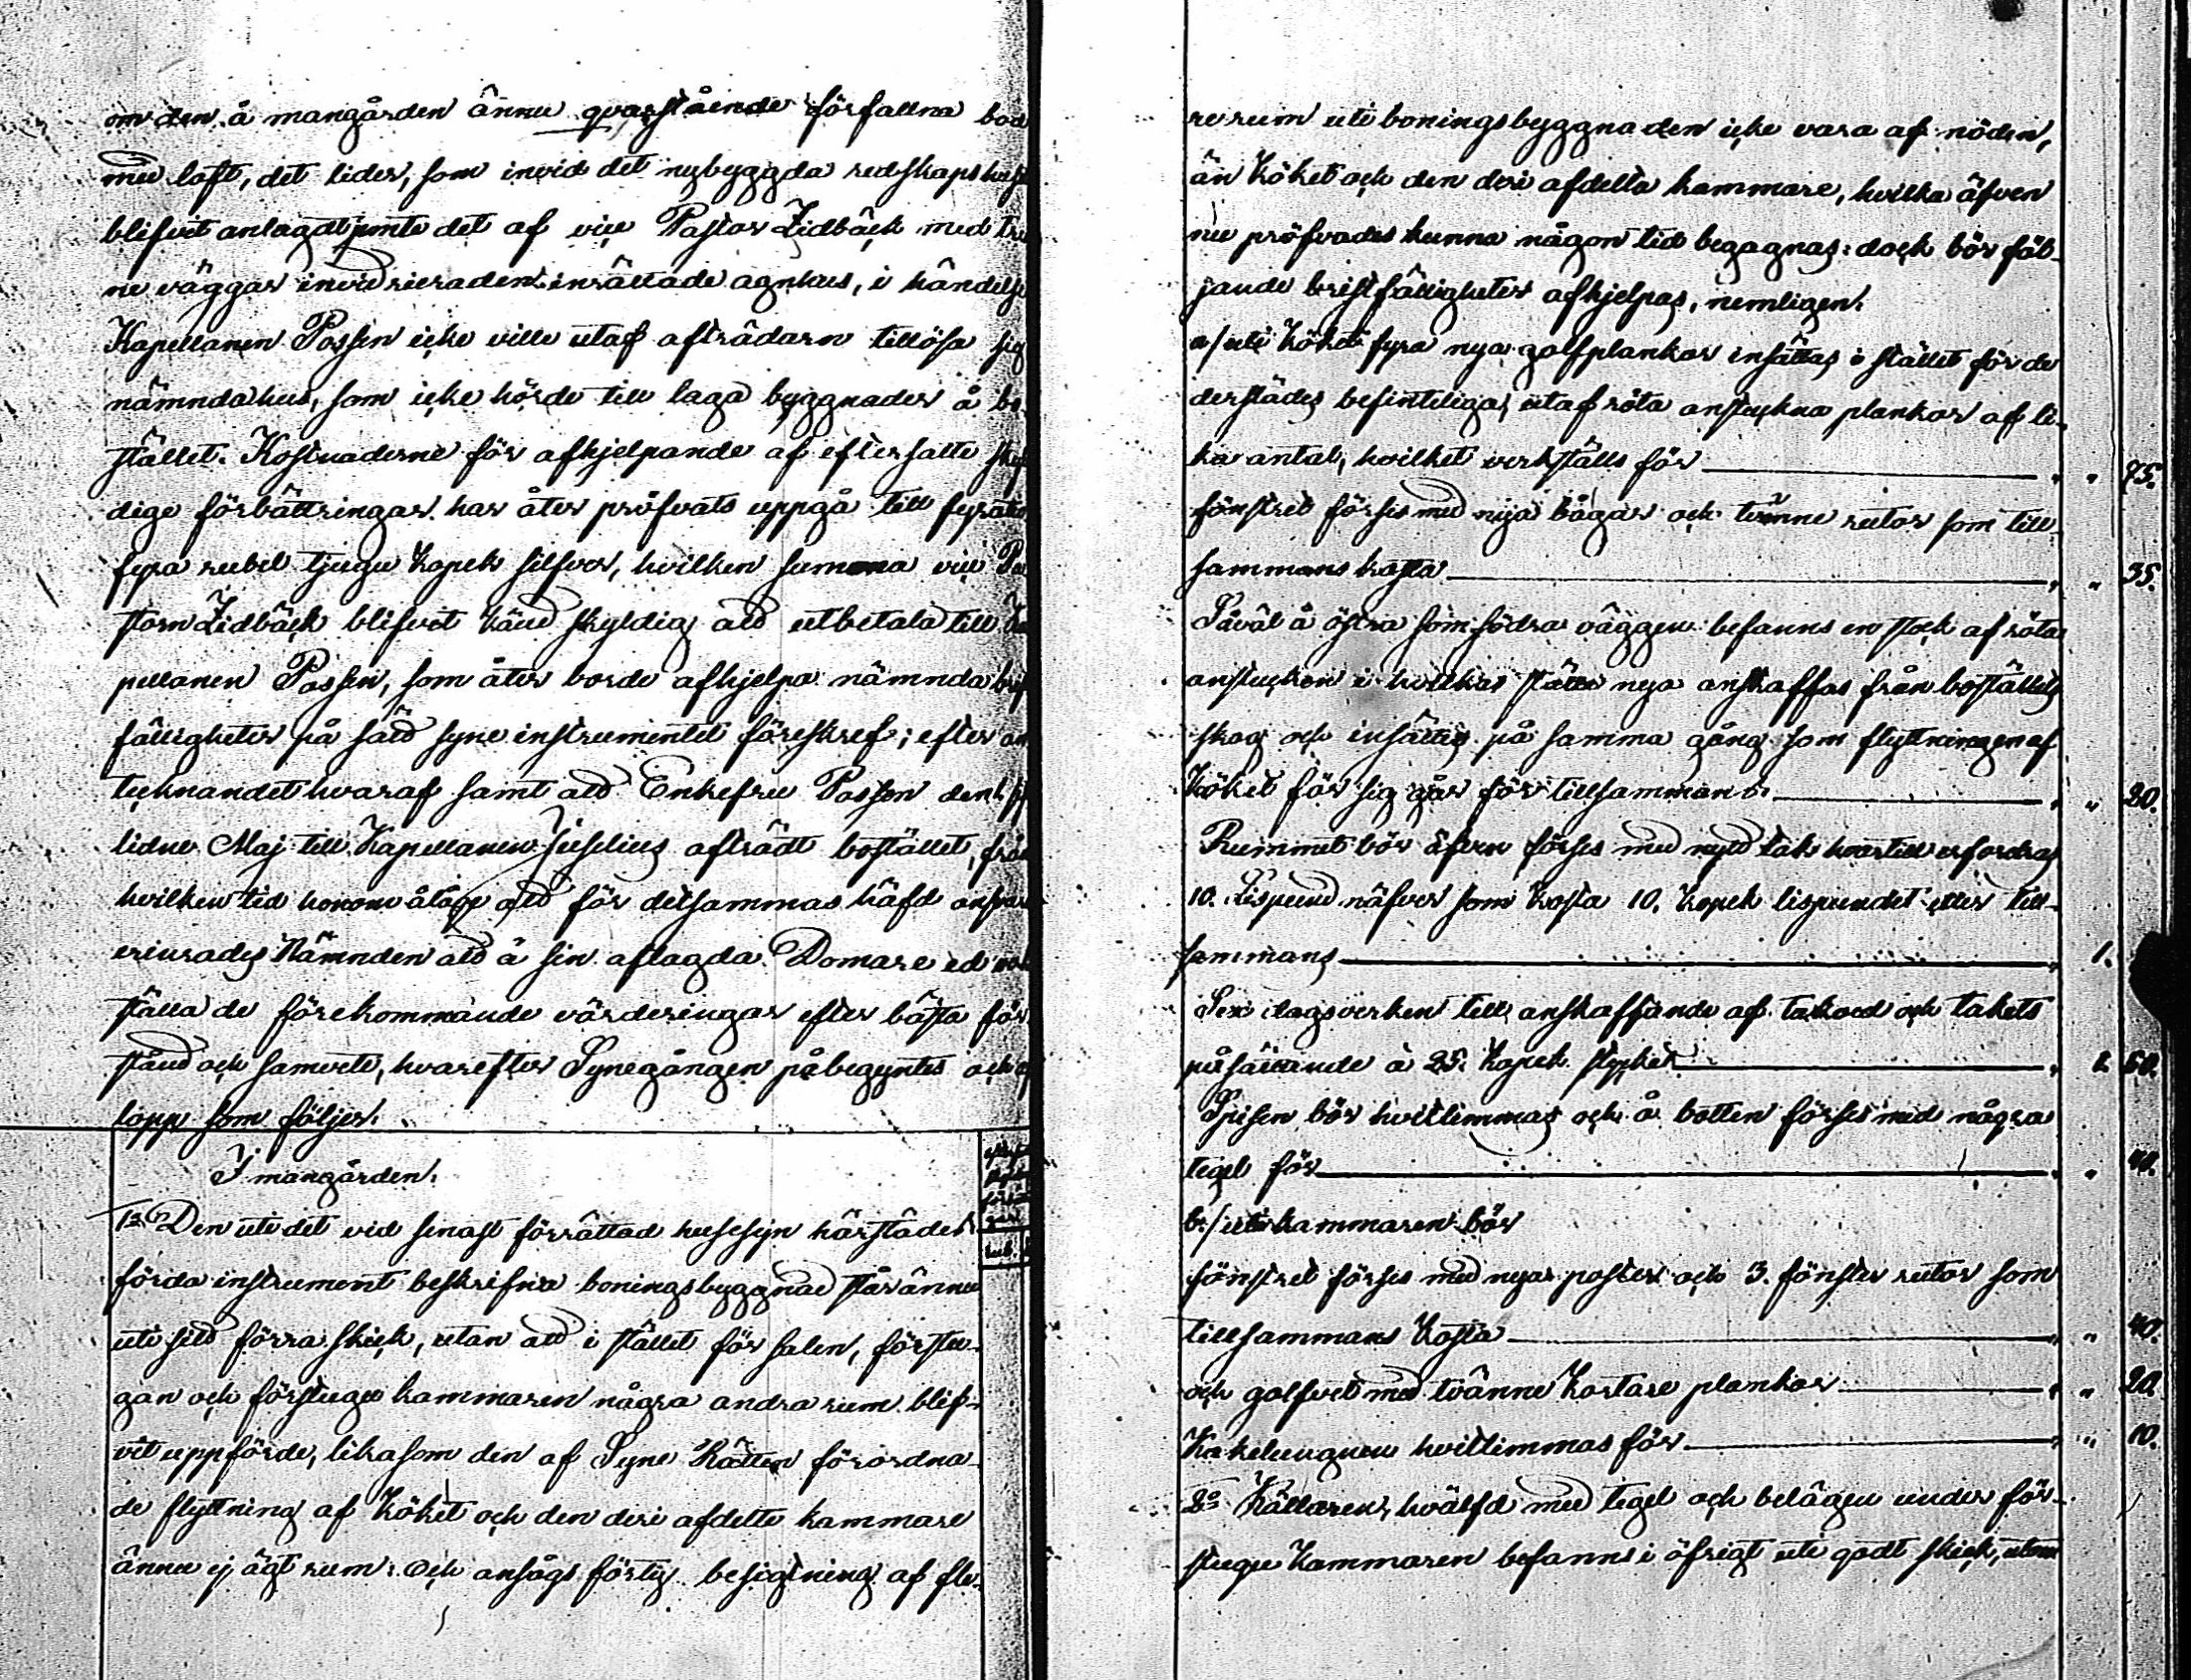 om den å mangården ännu qvarstående förfallna bod
med loft, det lider, som invid det nybyggda redskapshuset
blifvit anlagdt jemte det af vice Pastor Lidbäck med tre
ne väggar invid rieraden inrättade agnhus, i händelse
Kapellanen Possén icke ville utaf afträdarn tillösa sig
nämnda hus, som icke hörde till laga byggnader å bo-
stället. Kostnaderne för afhjelpande af eftersatte
dige förbättringar har åter pröfvats uppgå till fyratio
fyra rubel tjugu Kopek silfver, hvilken summa vice Pa
storn Lidbäck blifvit känd skyldig att utbetala till Ka
pellanen Possén, som åter borde afhjelpa nämnda brist
fälligheter på sätt syne instrumentet föreskref; efter an
tecknandet hvaraf samt att Enkefru Possén den 1
lidne Maj till Kapellanen afträdt bostället, från
hvilken tid honom ålågo att för detsammas häfd ansvara
erinrades Nämnden att å sin aflagda Domare ed verk
ställa de förekommande värderingar efter bästa för
stånd och samvete, hvarefter Synegången påbegyntes och af
lopp som följer.
I mangården.
1o Den uti det vid senast förrättad husesyn härstädes
förda instrument beskrifna boningsbyggnad står ännu
uti sitt förra skick, utan att i stället för salen, förstu-
gan och förstugu kammaren några andra rum blif-
vit uppförde, likasom den af Syne Rätten förordna-
de flyttning af Köket och den deri afdelte kammare
ännu ej ägt rum: och ansågs förty besigtning af fle-
re rum uti boningsbyggnaden icke vara af nöden,
än Köket och den deri afdelta kammare, hvilka äfven
nu pröfvades kunna någon tid begagnas: dock bör föl-
jande bristfälligheter afhjelpas, nemligen.
a/ uti Köket fyra nya golfplankor insättas i stället för de
derstädes befintliga, utaf röta anstuckna plankor af li-
ka antal, hvilket verkställs för " " 75.
fönstret förses med nya bågar och tvänne rutor som till-
sammans kosta " " 35.
Såväl å östra som södra väggen befanns en stock af röta
anstucken i hvilkas ställe nya anskaffas från boställets
skog och insättes på samma gång som flyttningen af
Köket för sig går för tillsammans. " " 20.
Rummet bör äfven förses med nytt tak hvartill erfordras
10. Lispund näfver som kosta 10. Kopek lispundet eller till-
sammans " 1.
Sex dagsverken till anskaffande af takved och takets
påsättande à 25. Kopek stycket " 1. 50.
Spisen bör hvitlimmas och å botten förses med några
tegel för " "
b./ uti kammaren bör
fönstret förses med nya poster och 3. fönster rutor som
tillsammans Kosta " " 40.
och golfvet med tvänne Kortare plankor " " 20.
Kakelungnen hvitlimmas för " " 10.
2o Källaren, hvälfd med tegel och belägen under för-
stugu Kammaren befanns i öfrigt uti godt skick, utom